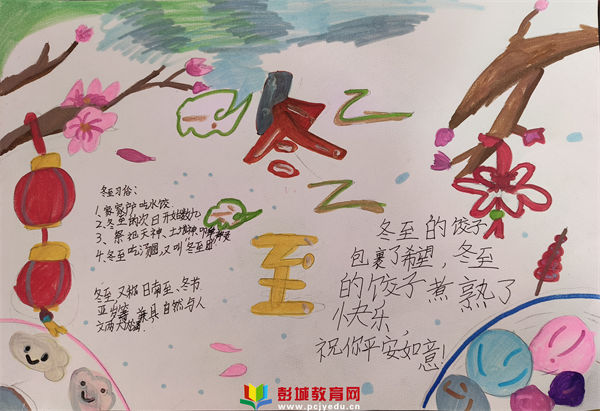 冬至
冬至习俗:
1.家家户户吃水饺
2.冬至的次日开始数九
3、祭祀天神、土地神
4.冬至吃汤圆又叫"冬至团"
冬至,又称日南至、冬节
亚岁等,兼具自然与人
文两大
冬至的饺子
包裹了希望,冬至
的饺子煮熟了
快乐,
祝你平安如意!
彭城教育网
www.pcjyedu.cn